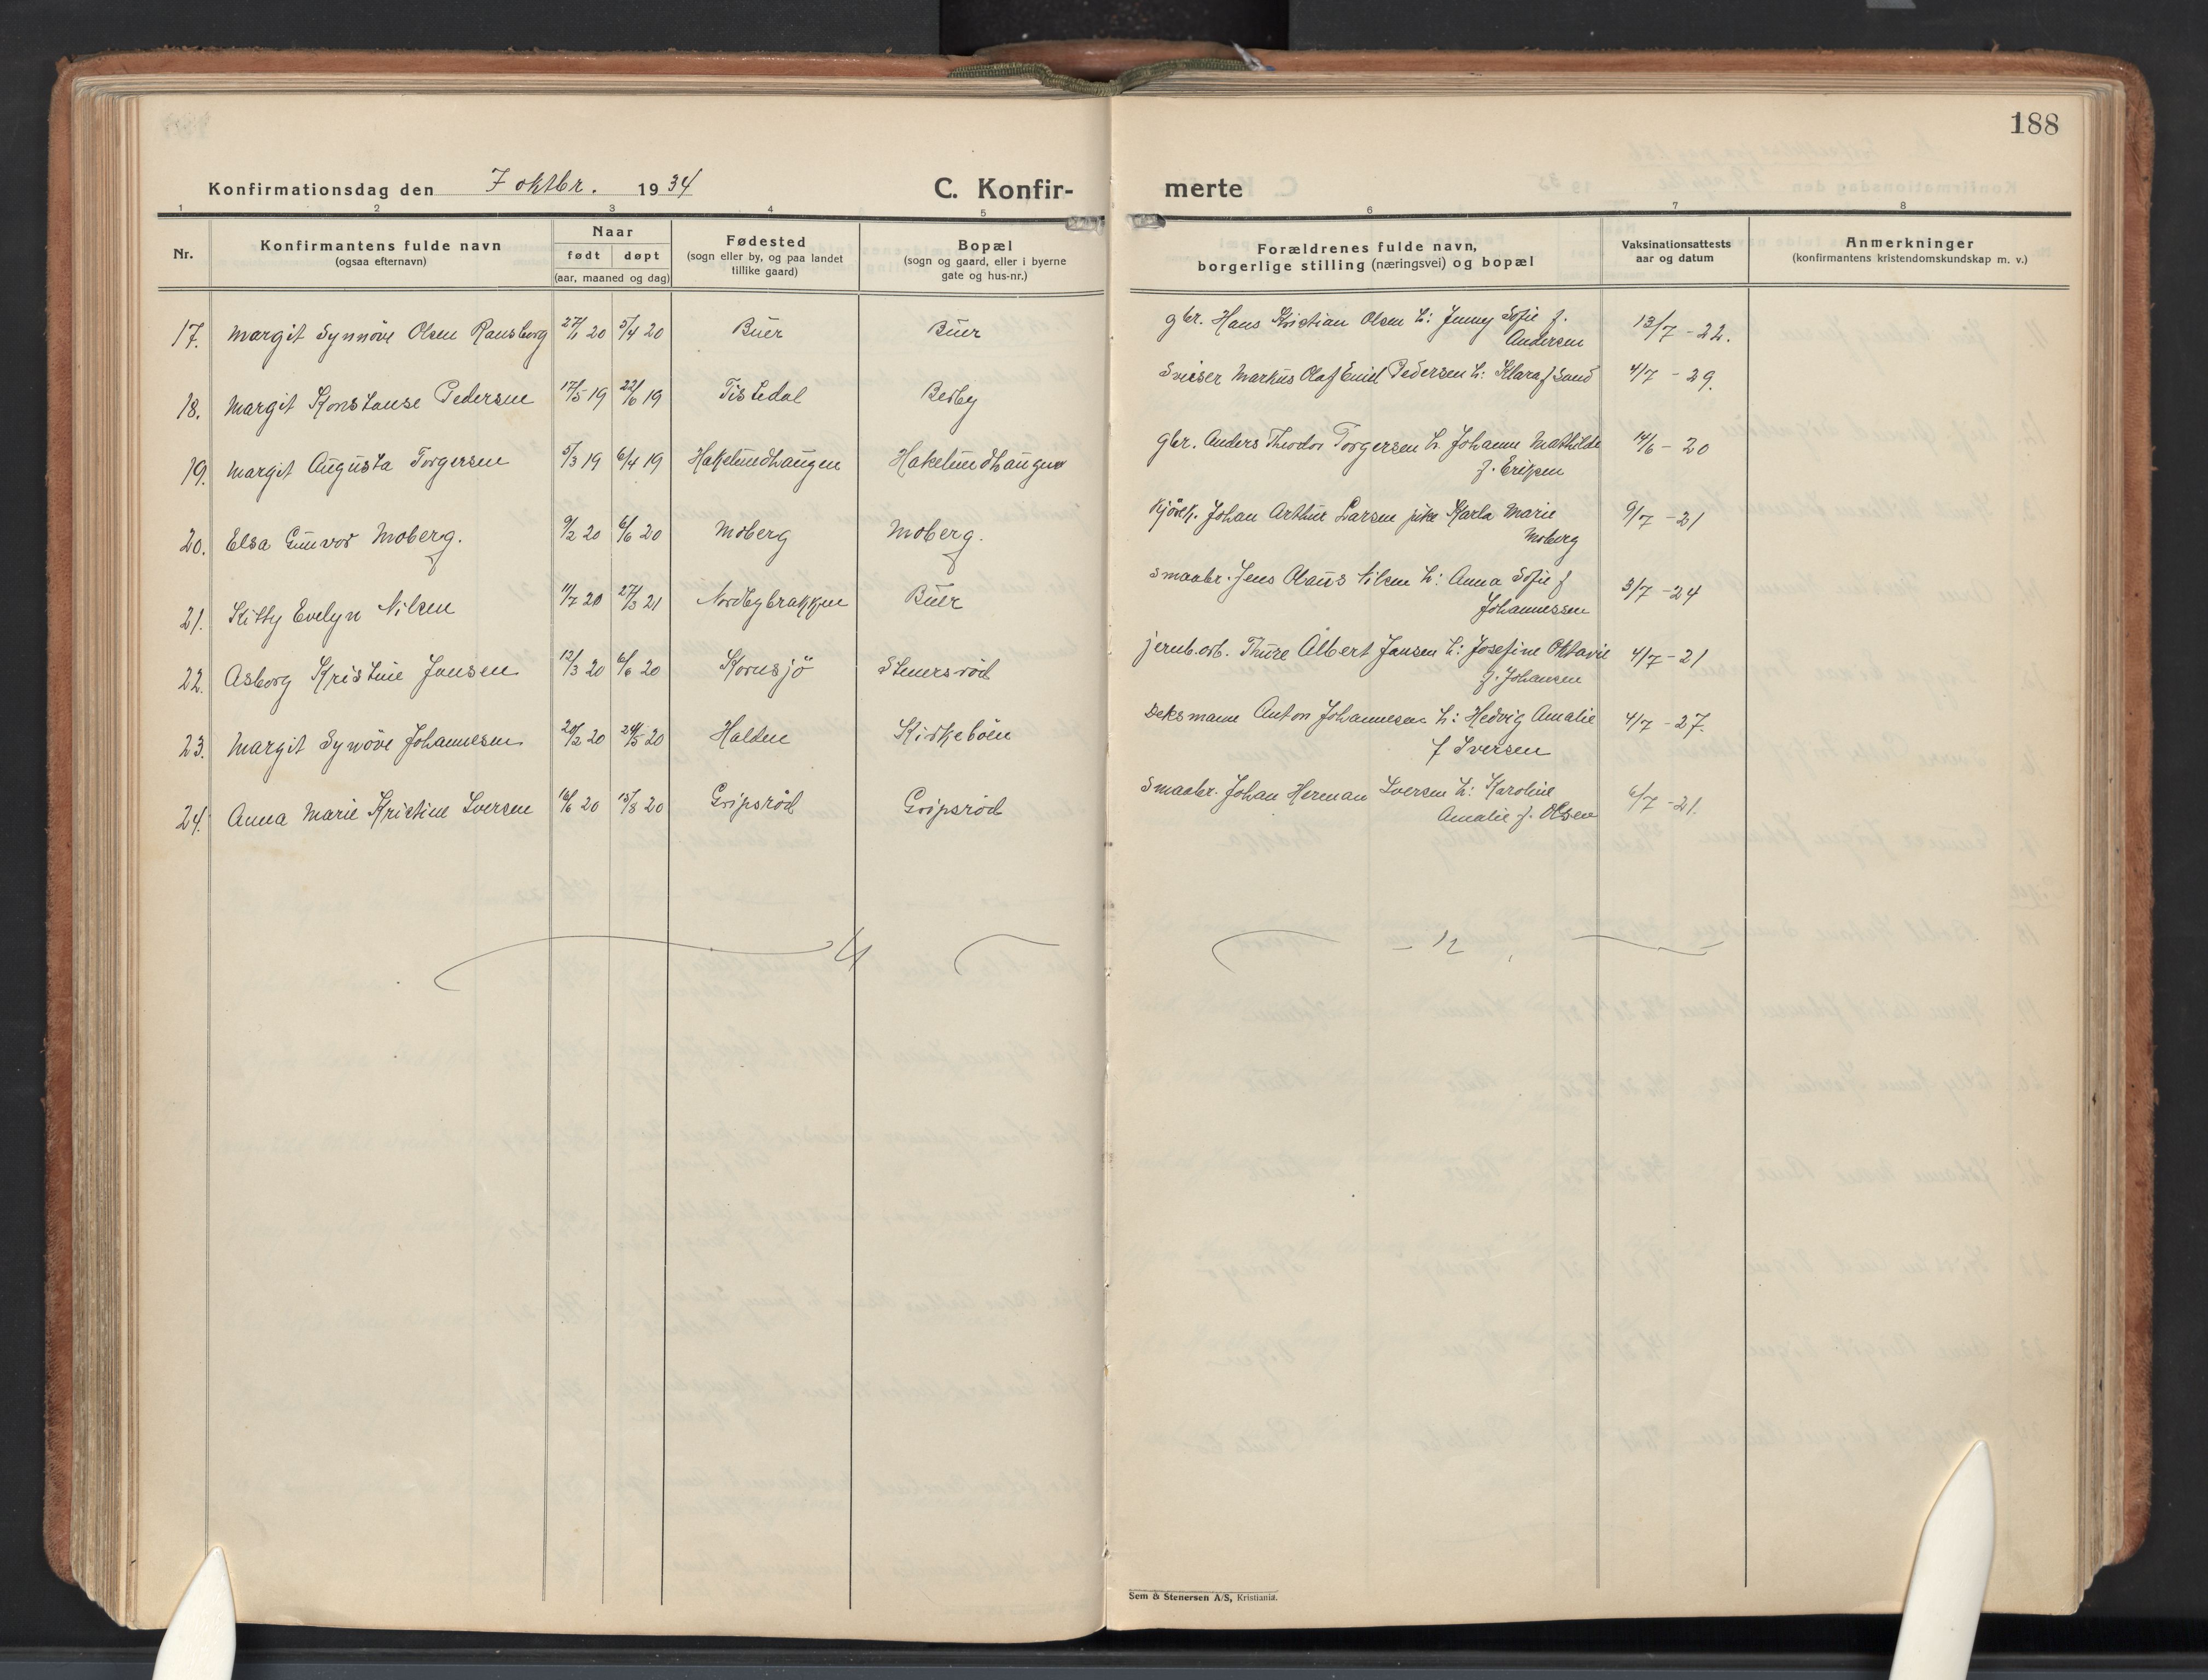 188
Konfirmationsdag den 7 oktbr. 1934
C. Konfir-merte
1 2 3 4 5 6 7 8
Nr.
Konfirmantens fulde navn
(ogsaa efternavn)
Naar
født døpt
(aar, maaned og dag)
Fødested
(sogn eller by, og paa landet
tillike gaard)
Bopæl
(sogn og gaard, eller i byerne
gate og hus-nr.)
Forældrenes fulde navn,
borgerlige stilling (næringsvei) og bopæl
Vaksinationsattests
aar og datum
Anmerkninger
(konfirmantens kristendomskundskap m. v.)
17. Margit Synnöve Olsen Ransborg 27/1 20 5/4 20 Buer Buer gbr. Hans Kristian Olsen h: Jenny Sofie f. 13/7 - 22.
Andersen
18. Margit Konstanse Pedersen 17/5 19 22/6 19 Tistedal Berby Sveiser Markus Olaf Emil Pedersen h: Klara f Sand 4/7 - 29.
19. Margit Augusta Torgersen 5/3 19 6/4 19 Hakelundhaugen Hakelundhaugen gbr. Anders Theodor Torgersen h. Johanne Mathilde 14/6 - 20
f. Eriksen
20. Elsa Gunvor Moberg. 9/2 20 6/6 20 Moberg Moberg. Kjörek. Johan Arthur Larsen pike Karla Marie 9/7 - 21
Moberg
21. Kitty Evelyn Nilsen 11/7 20 27/3 21 Nordbybrakken Buer Smaabr. Jens Olaus Nilsen h: Anna Sofie f 3/7 - 24
Johannessen
22. Asborg Kristine Jansen 12/3 20 6/6 20 Kornsjö Stenersröd jernb.arb. Thure Albert Jansen h: Josefine Oktavie 4/7 - 21
f. Johansen
23. Margit Synöve Johannesen 20/2 20 24/5 20 Halden Kirkeböen Deksmann Anton Johannesen h: Hedvig Amalie 4/7 - 27.
f Iversen
24. Anna Marie Kristine Iversen 16/6 20 15/8 20 Gripsröd Gripsröd Smaabr. Johan Herman Iversen h: Karoline 6/7 - 21.
Amalie f. Olsen
Sem & Stenersen A/S, Kristiania.